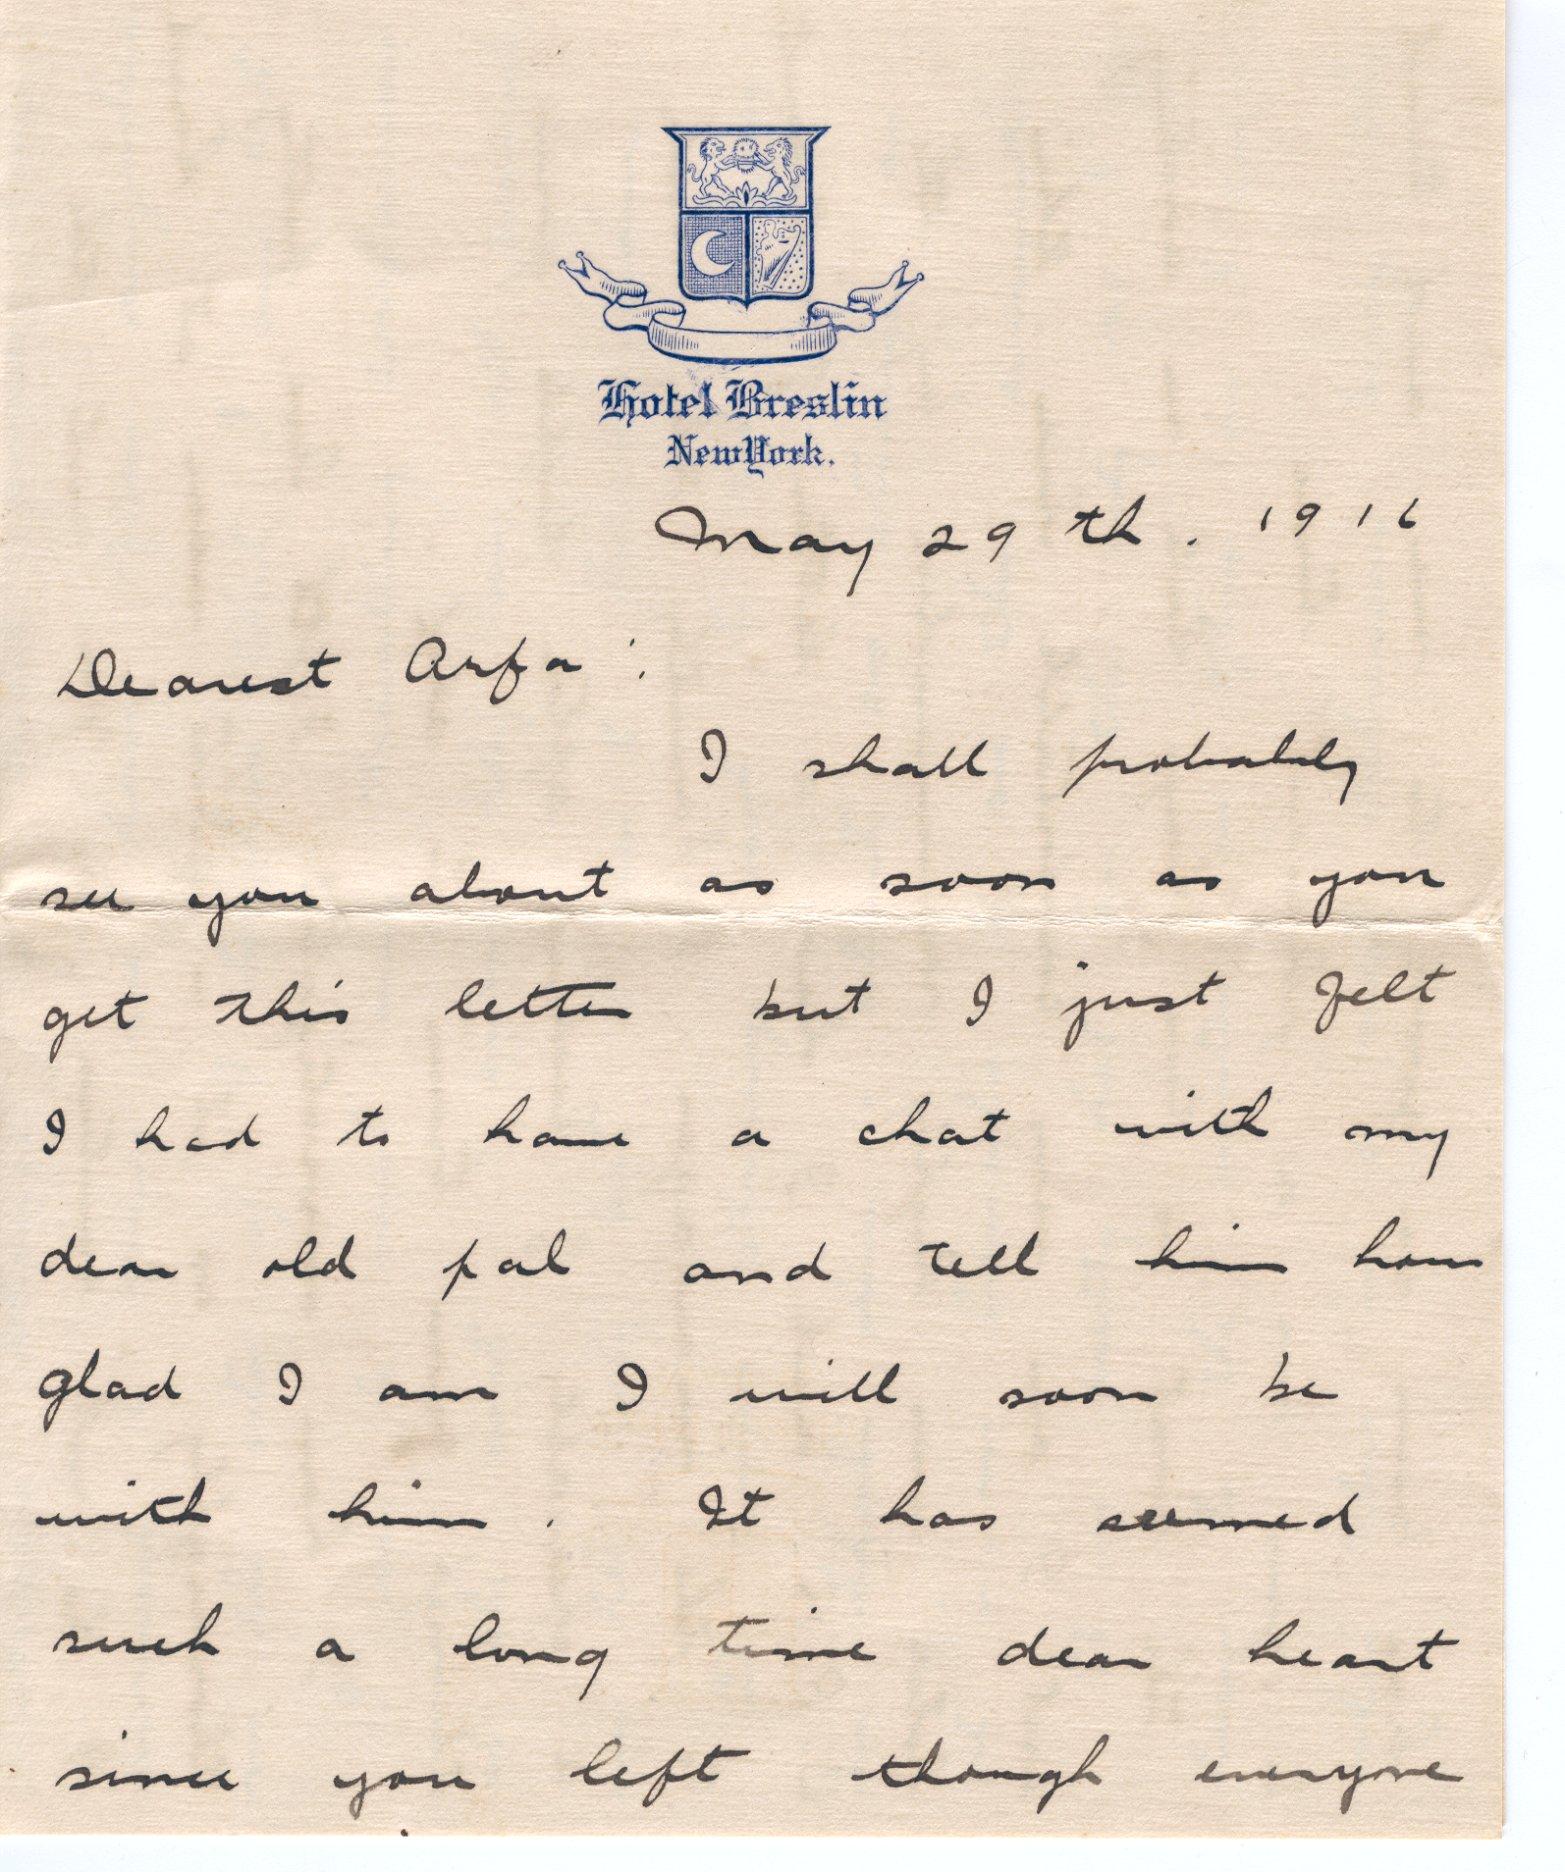 Hotel Breslin
New York.
May 29th. 1916
Dearest Arfa:
I shall probably
see you about as soon as you
get this letter but I just felt
I had to have a chat with my
dear old pal and tell him how
glad I am I will soon be
with him. It has seemed
such a long time dear heart
since you left though everyone